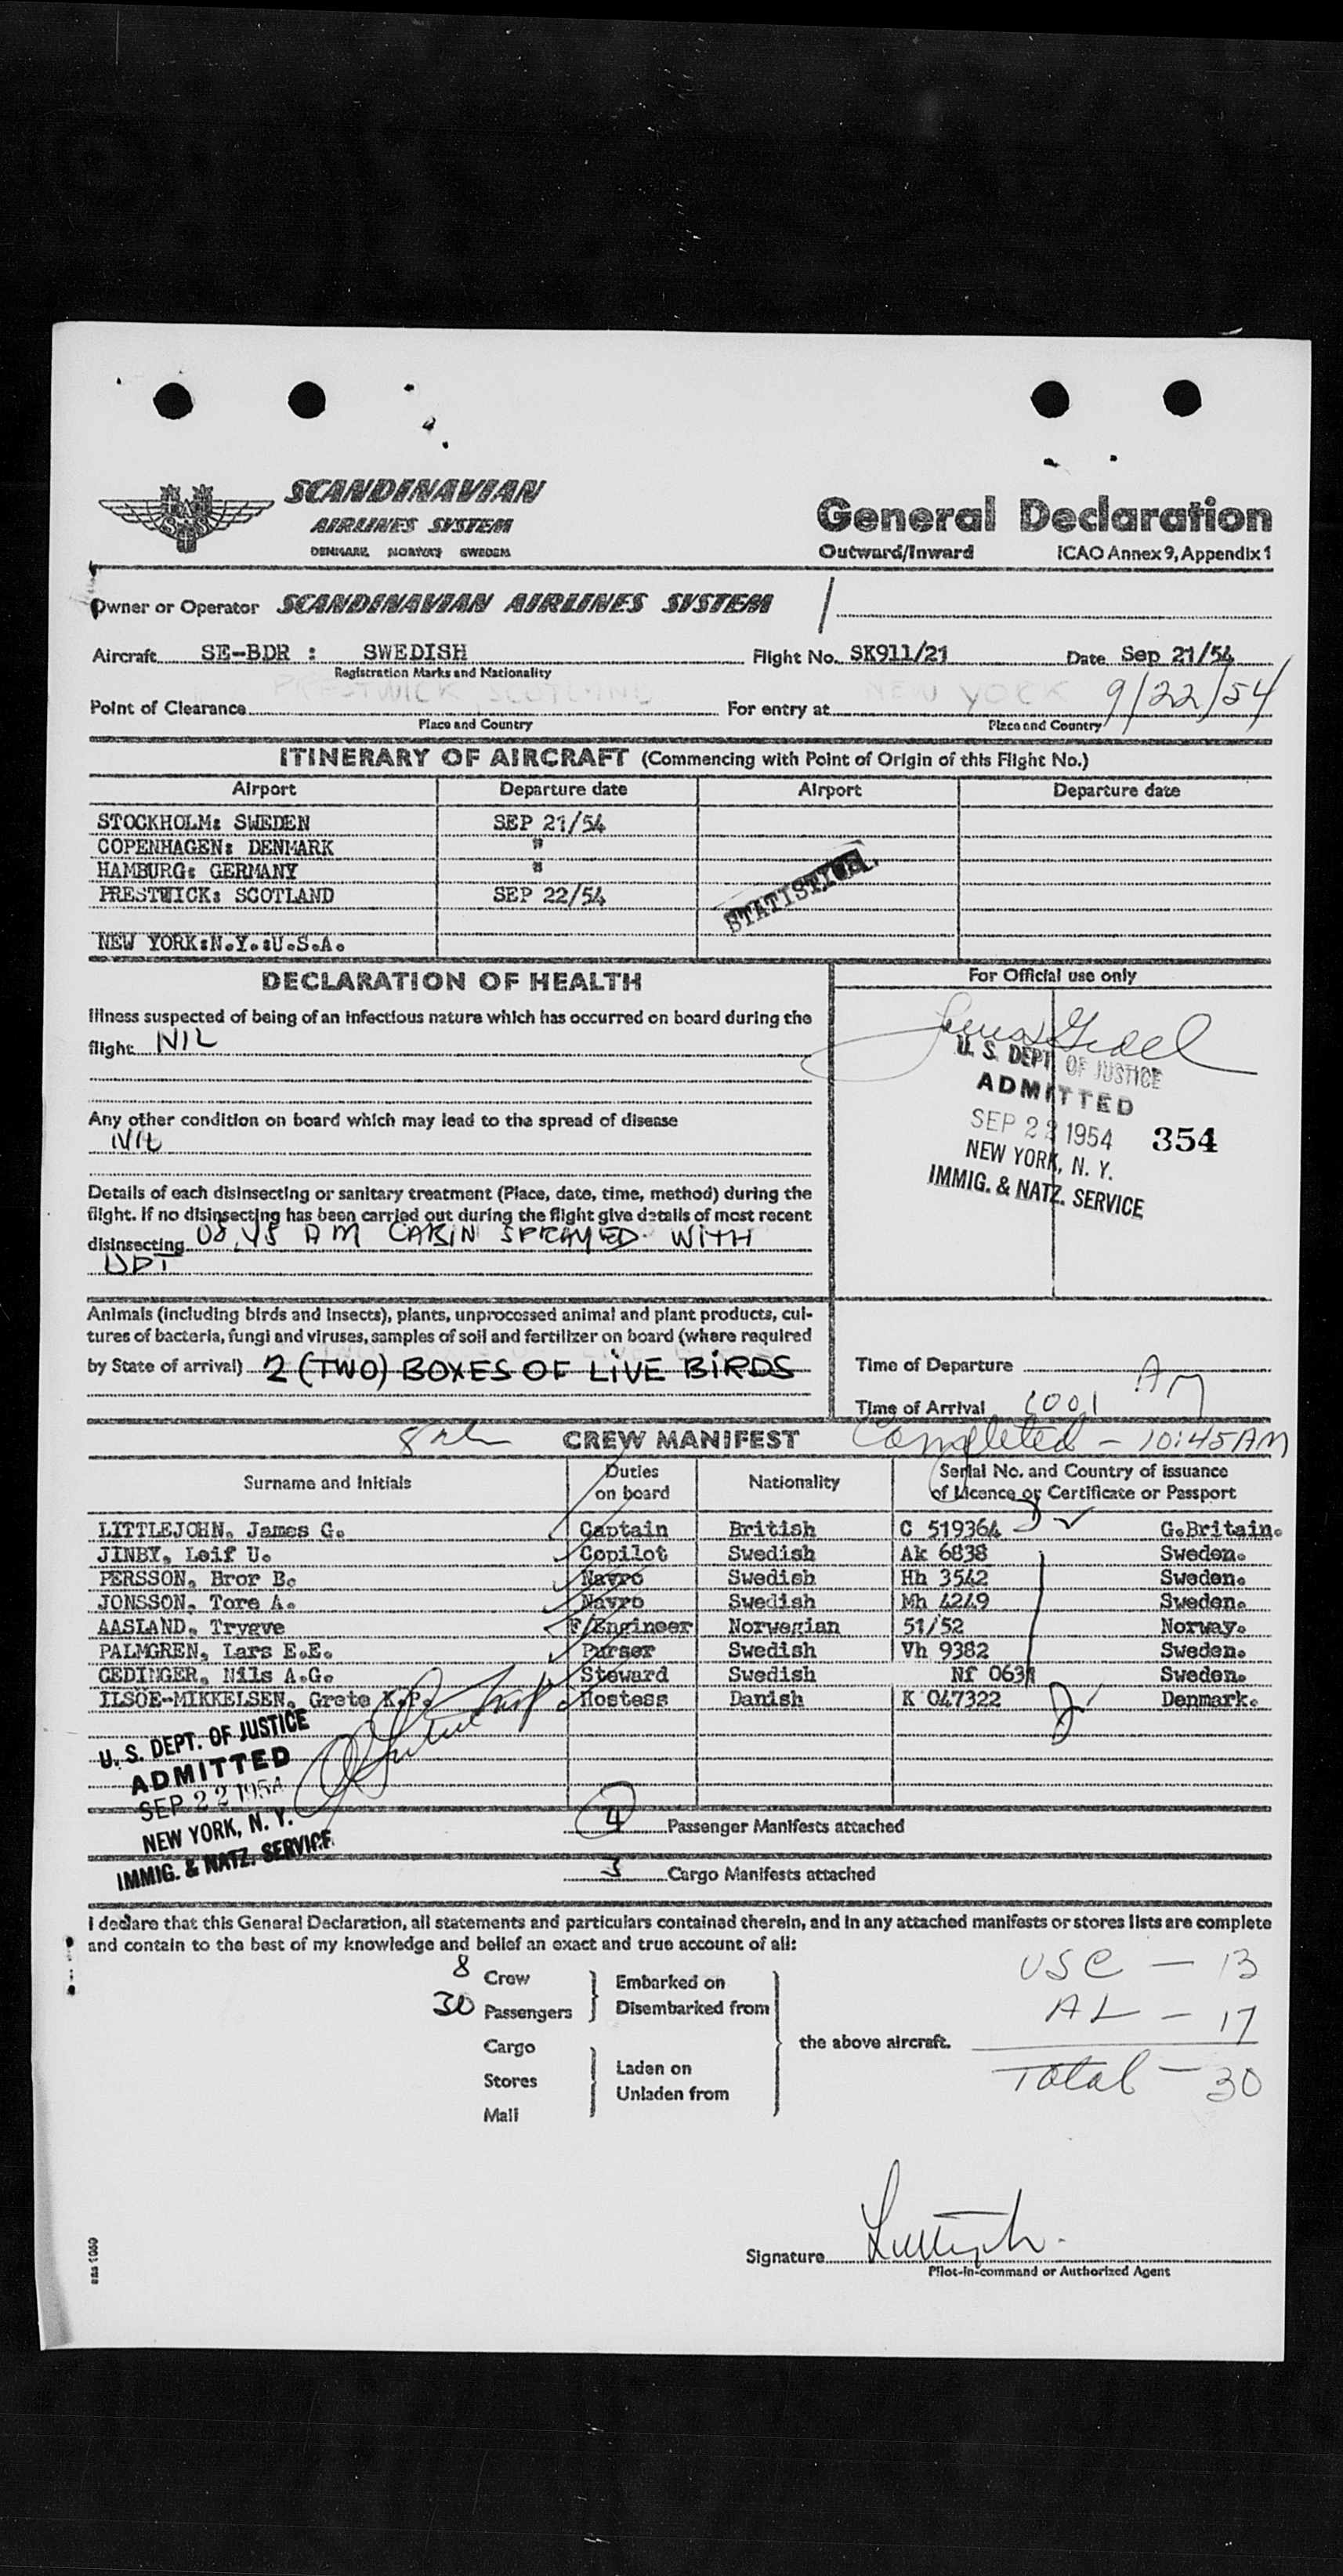 SCANDINAVIAN
AIRLINES SYSTEM
DENMARK NORWAY SWEDEN
General Declaration
Outward/Inward ICAO Annex 9, Appendix 1
Owner or Operator SCANDINAVIAN AIRLINES SYSTEM
Aircraft SE-BDR : SWEDISH Flight No. SK911/21 Date Sep 21/54
Registration Marks and Nationality
PRESTWICK SCOTLAND NEW YORK 9/22/54
Point of Clearance For entry at
Place and Country Place and Country
ITINERARY OF AIRCRAFT (Commencing with Point of Origin of this Flight No.)
Airport Departure date Airport Departure date
STOCKHOLM: SWEDEN SEP 21/54
COPENHAGEN: DENMARK "
HAMBURG: GERMANY "
PRESTWICK: SCOTLAND SEP 22/54
STATISTICAL
NEW YORK:N.Y.:U.S.A.
DECLARATION OF HEALTH
Illness suspected of being of an infectious nature which has occurred on board during the
flight NIL
Any other condition on board which may lead to the spread of disease
NIL
Details of each disinsecting or sanitary treatment (Place, date, time, method) during the
flight. If no disinsecting has been carried out during the flight give details of most recent
disinsecting 08,45 AM CABIN SPRAYED WITH
DDT
For Official use only
U. S. DEPT. OF JUSTICE
ADMITTED
SEP 22 1954 354
NEW YORK, N. Y.
IMMIG. & NATZ. SERVICE
Animals (including birds and insects), plants, unprocessed animal and plant products, cul-
tures of bacteria, fungi and viruses, samples of soil and fertilizer on board (where required
by State of arrival) 2 (TWO) BOXES OF LIVE BIRDS
Time of Departure
Time of Arrival 1001 AM
Completed - 10:45 AM
CREW MANIFEST
Surname and Initials Duties on board Nationality Serial No. and Country of issuance of Licence or Certificate or Passport
LITTLEJOHN, James G. Captain British C 519364 G.Britain.
JINBY, Leif U. Copilot Swedish Ak 6838 Sweden.
PERSSON, Bror B. Navro Swedish Hh 3542 Sweden.
JONSSON, Tore A. Navro Swedish Mh 4249 Sweden.
AASLAND, Trygve F/Engineer Norwegian 51/52 Norway.
PALMGREN, Lars E.E. Purser Swedish Vh 9382 Sweden.
CEDINGER, Nils A.G. Steward Swedish Nf 063 Sweden.
ILSOE-MIKKELSEN, Grete K.P. Hostess Danish K 047322 Denmark.
U. S. DEPT. OF JUSTICE
ADMITTED
SEP 22 1954
NEW YORK, N. Y.
IMMIG. & NATZ. SERVICE
4 Passenger Manifests attached
3 Cargo Manifests attached
I declare that this General Declaration, all statements and particulars contained therein, and in any attached manifests or stores lists are complete
and contain to the best of my knowledge and belief an exact and true account of all:
8 Crew Embarked on
30 Passengers Disembarked from
Cargo the above aircraft.
Stores Laden on
Unladen from
Mail
USC - 13
AL - 17
Total - 30
Signature
Pilot-in-command or Authorized Agent
sas 1060